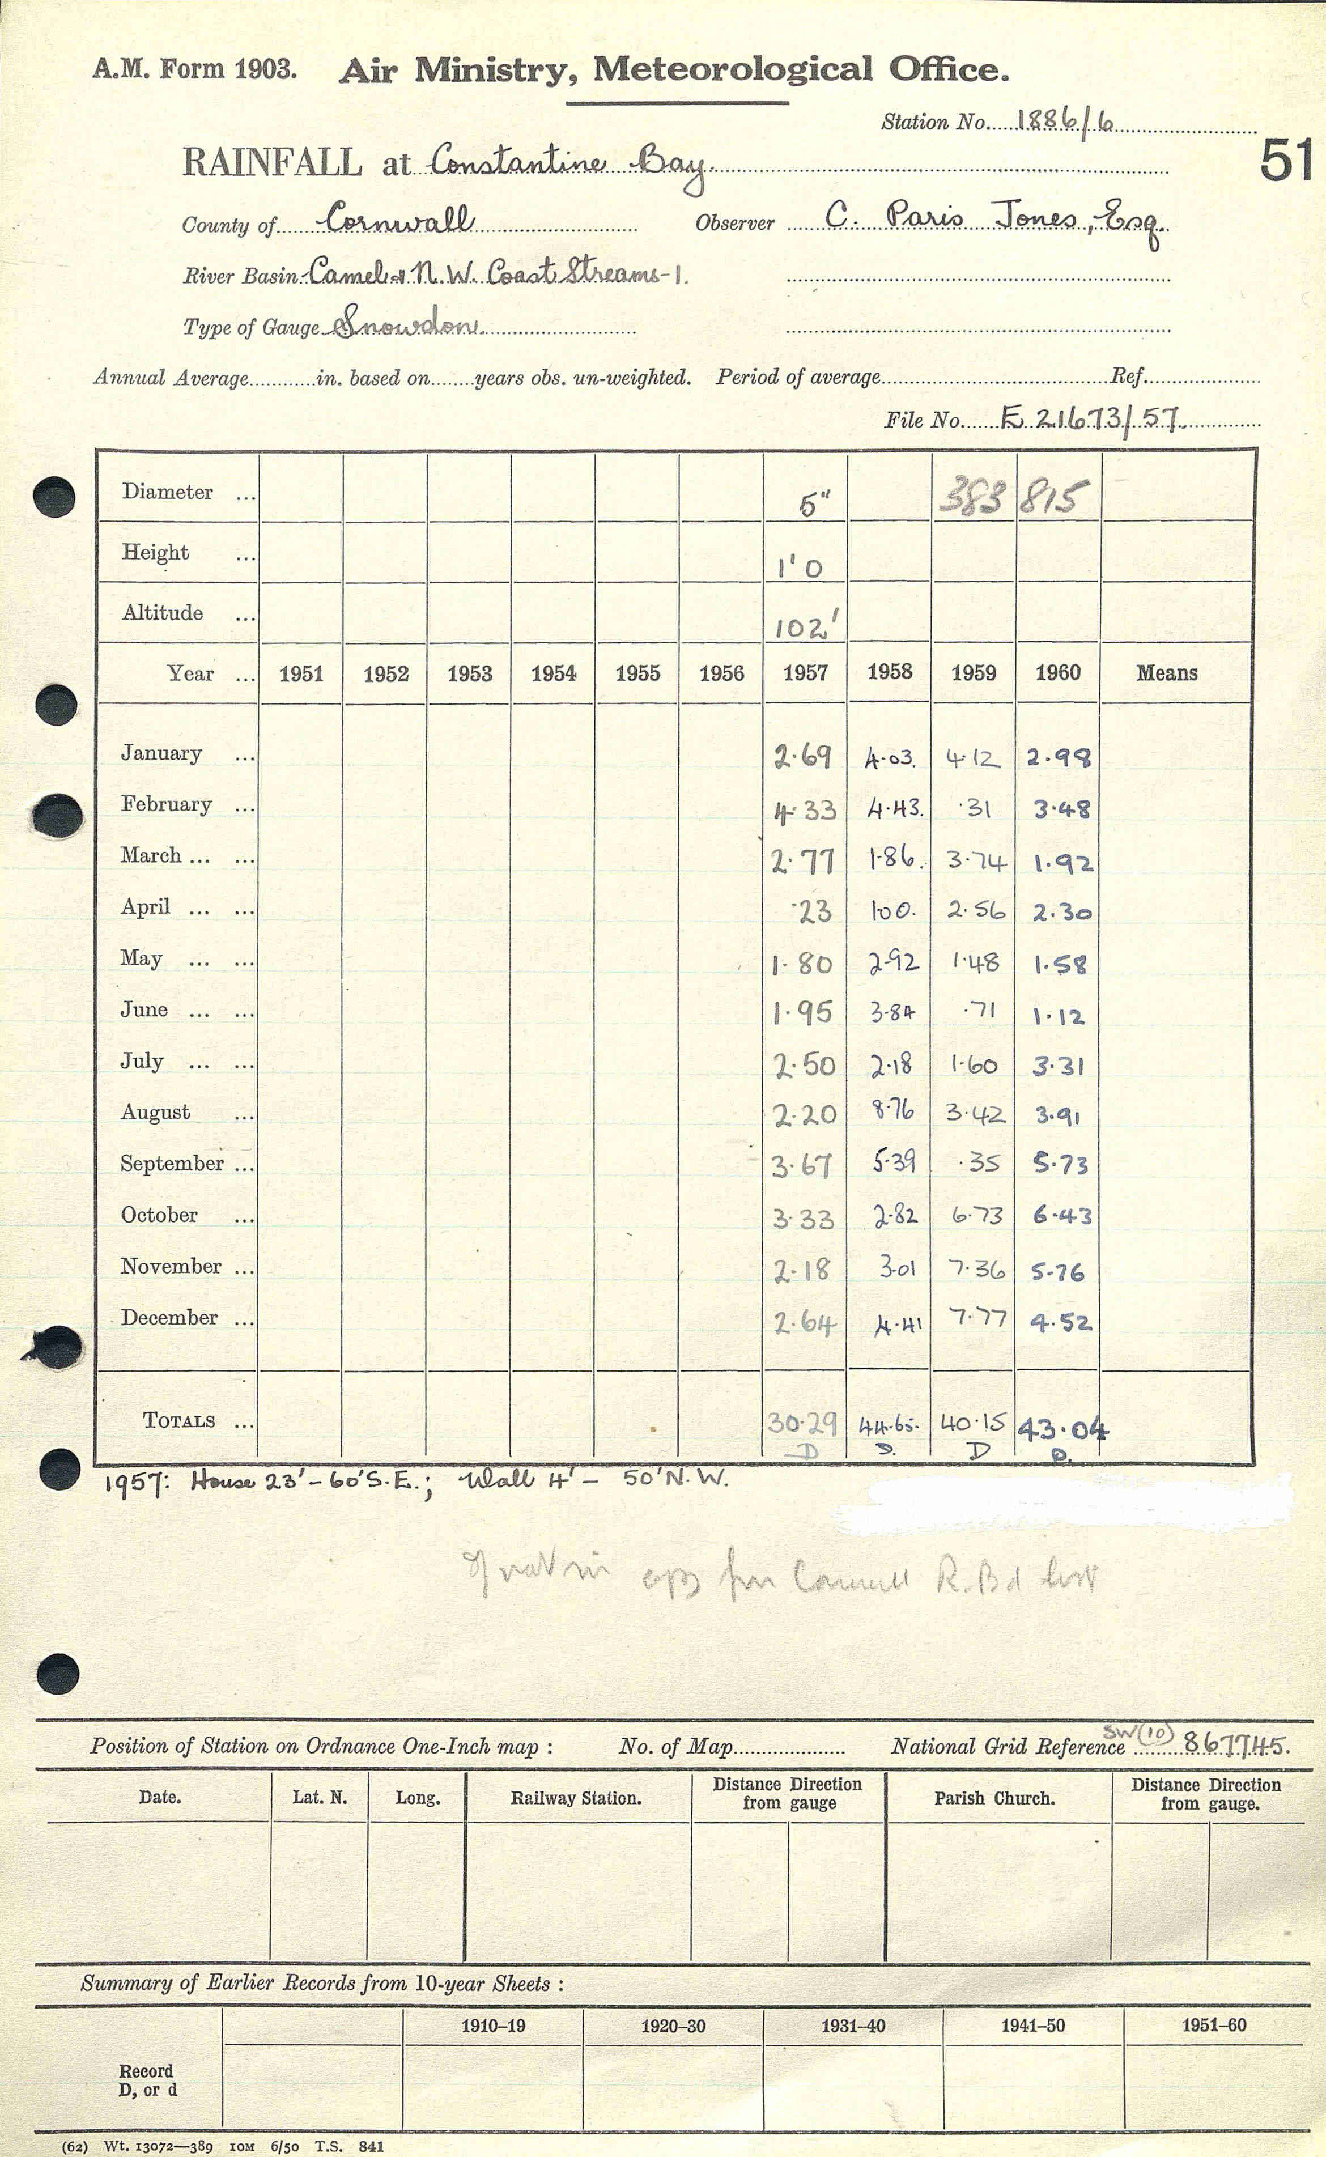 A.M. Form 1903. Air Ministry, Meteorological Office.
Station No. 1886/6
51
RAINFALL at Constantine Bay.
County of Cornwall Observer C. Paris Jones, Esq.
River Basin Camel & N.W. Coast Streams-1.
Type of Gauge Snowdon
Annual Average............in. based on........years obs. un-weighted. Period of average........................................Ref.....................
File No. E 21673/57
Diameter ... 5" 383 815
Height ... 1'0
Altitude ... 102'
Year ... 1951 1952 1953 1954 1955 1956 1957 1958 1959 1960 Means
January ... 2.69 4.03. 4.12 2.98
February ... 4.33 4.43. .31 3.48
March ... ... 2.77 1.86. 3.74 1.92
April ... ... .23 1.00. 2.56 2.30
May ... ... 1.80 2.92 1.48 1.58
June ... ... 1.95 3.84 .71 1.12
July ... ... 2.50 2.18 1.60 3.31
August ... 2.20 8.76 3.42 3.91
September ... 3.67 5.39 .35 5.73
October ... 3.33 2.82 6.73 6.43
November ... 2.18 3.01 7.36 5.76
December ... 2.64 4.41 7.77 4.52
TOTALS ... 30.29 44.65. 40.15 43.04
D D. D D.
1957: House 23'-60'S.E.; Wall 4' - 50'N.W.
copy Cornwall R. Bd list
Position of Station on Ordnance One-Inch map : No. of Map.................... National Grid Reference SW(10) 867745.
Date. Lat. N. Long. Railway Station. Distance Direction from gauge Parish Church. Distance Direction from gauge.
Summary of Earlier Records from 10-year Sheets :
1910–19 1920–30 1931–40 1941–50 1951–60
Record
D, or d
(62) Wt. 13072—389 10M 6/50 T.S. 841